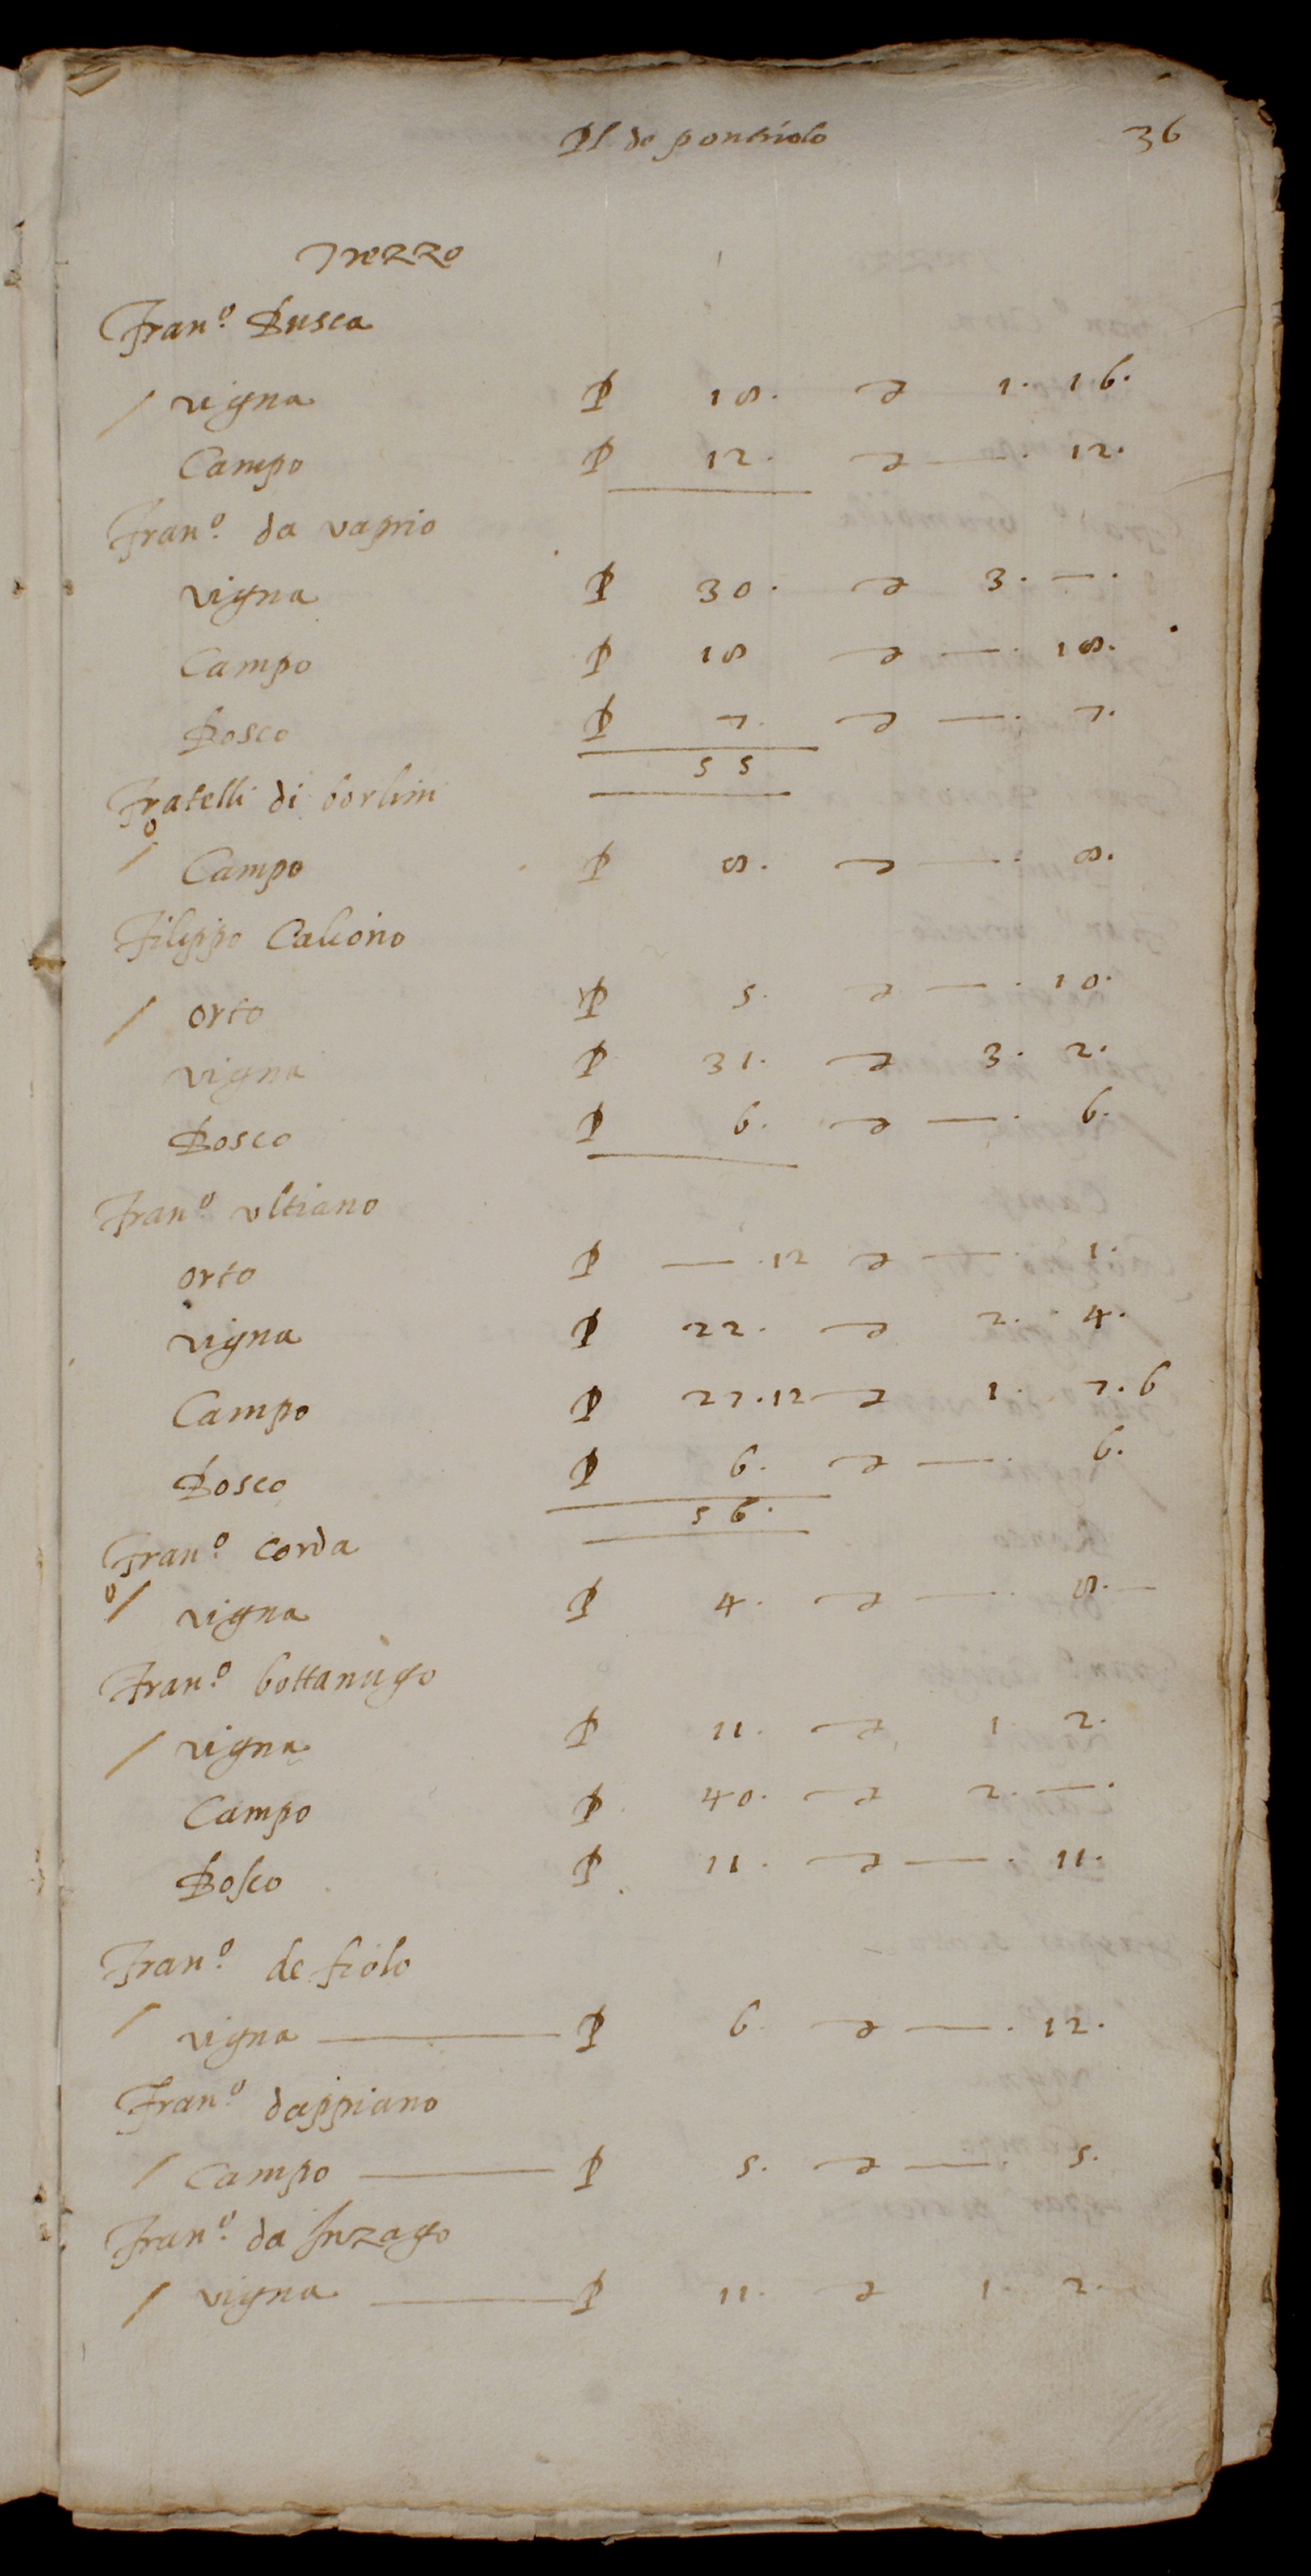 Pl. de pontirolo 36
Trezzo
Fran.º Busca
/ vigna P 18. £ 1. 16.
Campo P 12. £ —. 12.
Fran.º da vaprio
vigna P 30. £ 3. —.
Campo P 18 £ —. 18.
Bosco P 7. £ —. 7.
55
Fratelli di borlini
o/ Campo P 8. £ —. 8.
Filippo Calcono
/ orto P 5. £ —. 10.
vigna P 31. £ 3. 2.
Bosco P 6. £ —. 6.
Fran.º vltiano
orto P —.12 £ —. 1.
vigna P 22. £ 2. 4.
Campo P 27.12 £ 1. 7. 6
Bosco P 6. £ —. 6.
56.
Fran.º corda
o/ vigna P 4. £ —. 8.—
Fran.º bottanugo
/ vigna P 11. £ 1. 2.
Campo P 40. £ 2. —.
Bosco P 11. £ —. 11.
Fran.º de fiolo
/ vigna — P 6. £ —. 12.
Fran.º dappiano
/ Campo — P 5. £ —. 5.
Fran.º da Inzago
/ vigna — P 11. £ 1. 2.